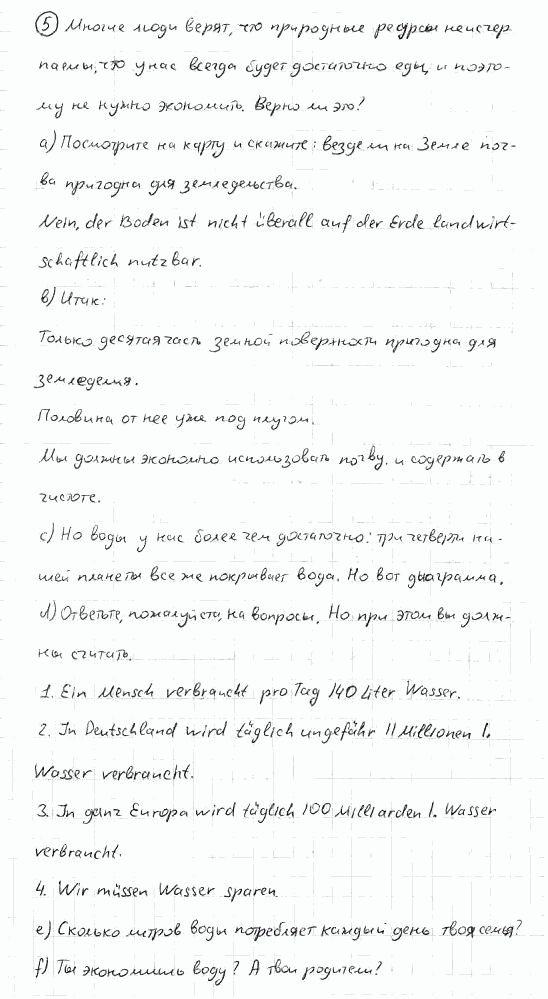 5 Многие люди верят, что природные ресурсы неисчер
паемы, что у нас всегда будет достаточно еды, и поэто-
му не нужно экономить. Верно ли это?
a) Посмотрите на карту и скажите: везде ли на Земле поч-
ва пригодна для земледельства.
Nein, der Boden ist nicht überall auf der Erde landwirt-
schaftlich nutzbar.
b) Итак:
Только десятая часть земной поверхности пригодна для
земледелия.
Половина от нее уже под плугом.
Мы должны экономно использовать почву и содержать в
чистоте.
c) Но воды у нас более чем достаточно: три четверти на-
шей планеты все же покрывает вода. Но вот диаграмма.
d) Ответьте, пожалуйста, на вопросы. Но при этом вы долж-
ны считать.
1. Ein Mensch verbraucht pro Tag 140 Liter Wasser.
2. In Deutschland wird täglich ungefähr 11 Millionen l.
Wasser verbraucht.
3. In ganz Europa wird täglich 100 Milliarden l. Wasser
verbraucht.
4. Wir müssen Wasser sparen
e) Сколько литров воды потребляет каждый день твоя семья?
f) Ты экономишь воду? А твои родители?